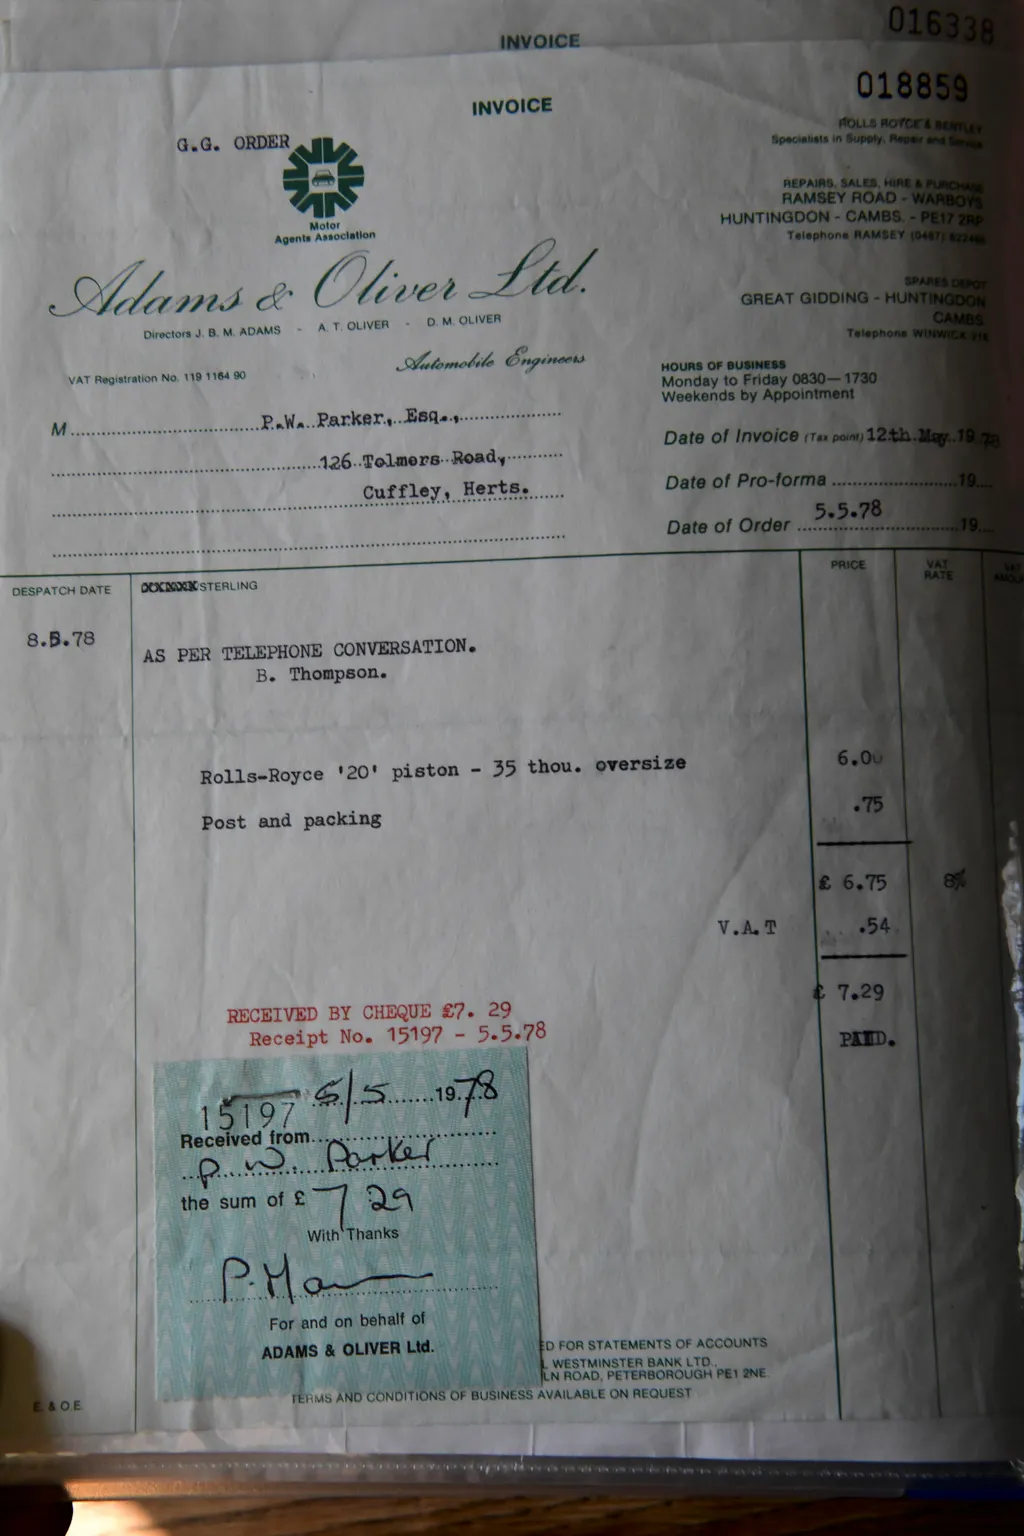 016338
INVOICE
018859
INVOICE
ROLLS ROYCE & BENTLEY
Specialists in Supply, Repair and Service
G.G. ORDER
Motor
Agents Association
REPAIRS, SALES, HIRE & PURCHASE
RAMSEY ROAD - WARBOYS
HUNTINGDON - CAMBS. - PE17 2RP
Telephone RAMSEY (0487)
Adams & Oliver Ltd.
Directors J. B. M. ADAMS - A. T. OLIVER - D. M. OLIVER
Automobile Engineers
SPARES DEPOT
GREAT GIDDING - HUNTINGDON
CAMBS.
Telephone WINWICK
VAT Registration No. 119 1164 90
HOURS OF BUSINESS
Monday to Friday 0830—1730
Weekends by Appointment
M P.W. Parker, Esq.,
126 Tolmers Road,
Cuffley, Herts.
Date of Invoice (Tax point) 12th May 1978
Date of Pro-forma 19
Date of Order 5.5.78 19
DESPATCH DATE
STERLING
PRICE
VAT
RATE
VAT
8.5.78
AS PER TELEPHONE CONVERSATION.
B. Thompson.
Rolls-Royce '20' piston - 35 thou. oversize 6.00
Post and packing .75
£ 6.75 8%
V.A.T .54
£ 7.29
PAID.
RECEIVED BY CHEQUE £7. 29
Receipt No. 15197 - 5.5.78
15197 5/5 1978
Received from
P. W. Parker
the sum of £ 7 29
With Thanks
For and on behalf of
ADAMS & OLIVER Ltd.
ED FOR STATEMENTS OF ACCOUNTS
L WESTMINSTER BANK LTD.,
LN ROAD, PETERBOROUGH PE1 2NE
TERMS AND CONDITIONS OF BUSINESS AVAILABLE ON REQUEST
E. & O.E.